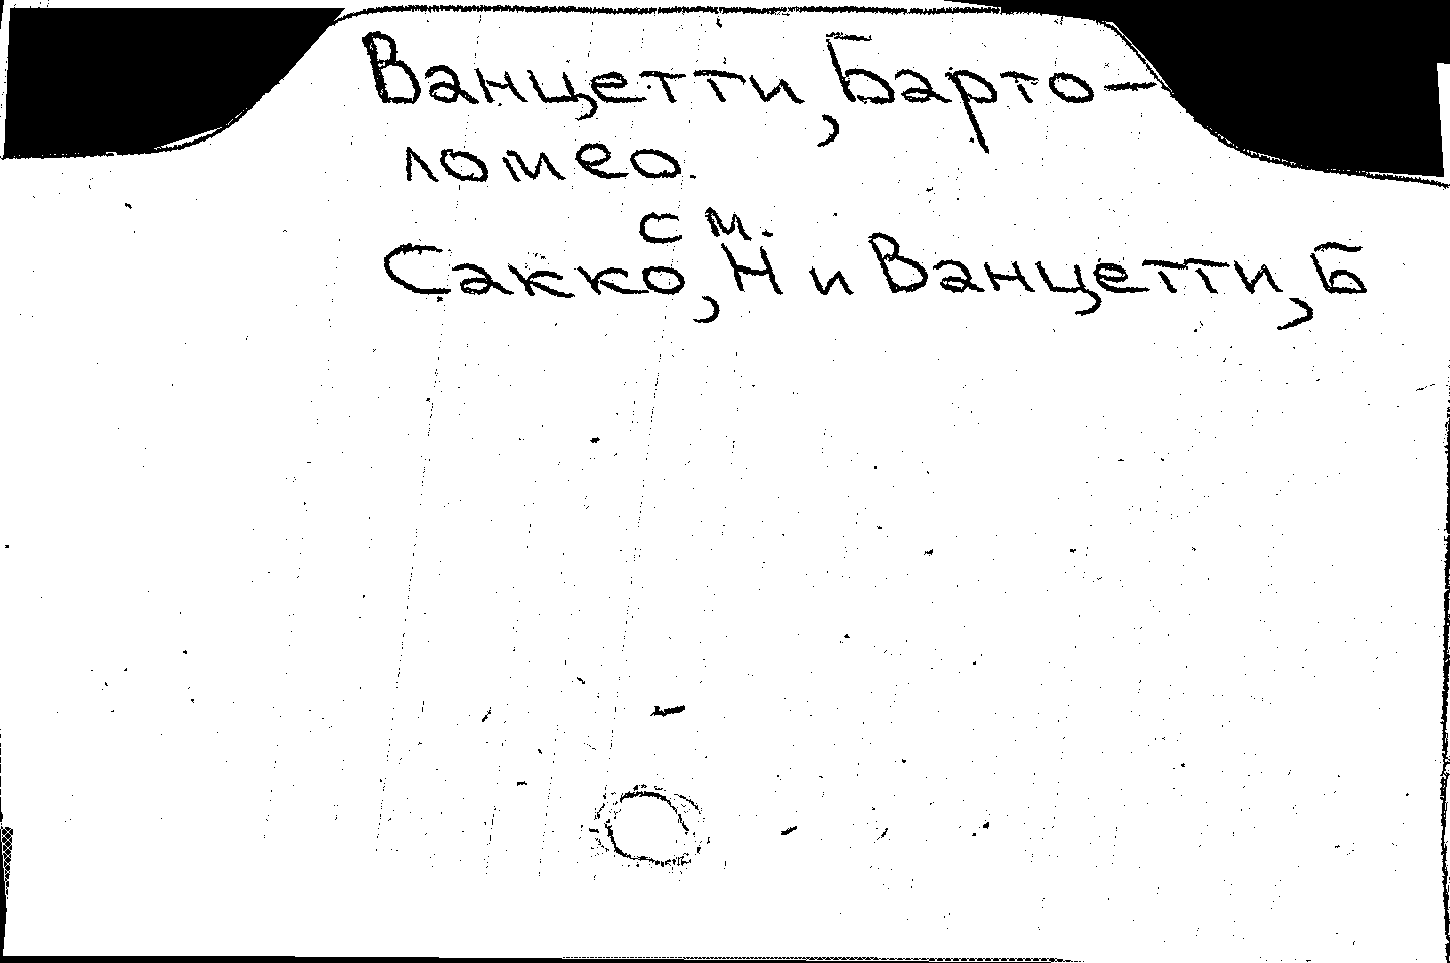 Ванцетти, Барто-
ломео.
см.
Сакко, Н и Ванцетти, Б